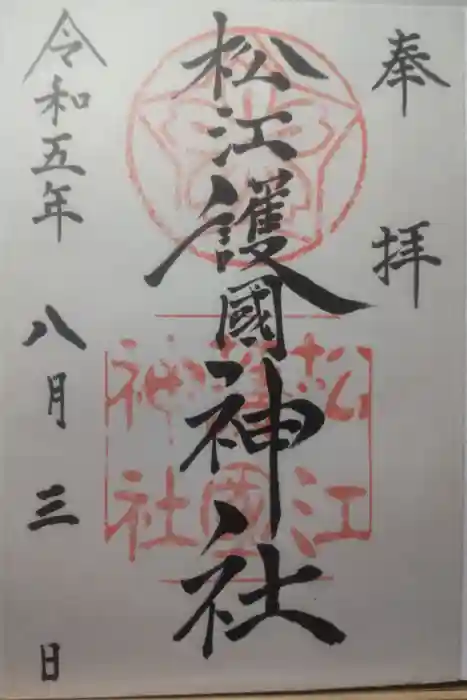 奉拝
松江護國神社
令和五年八月三日
松江
護國
神社